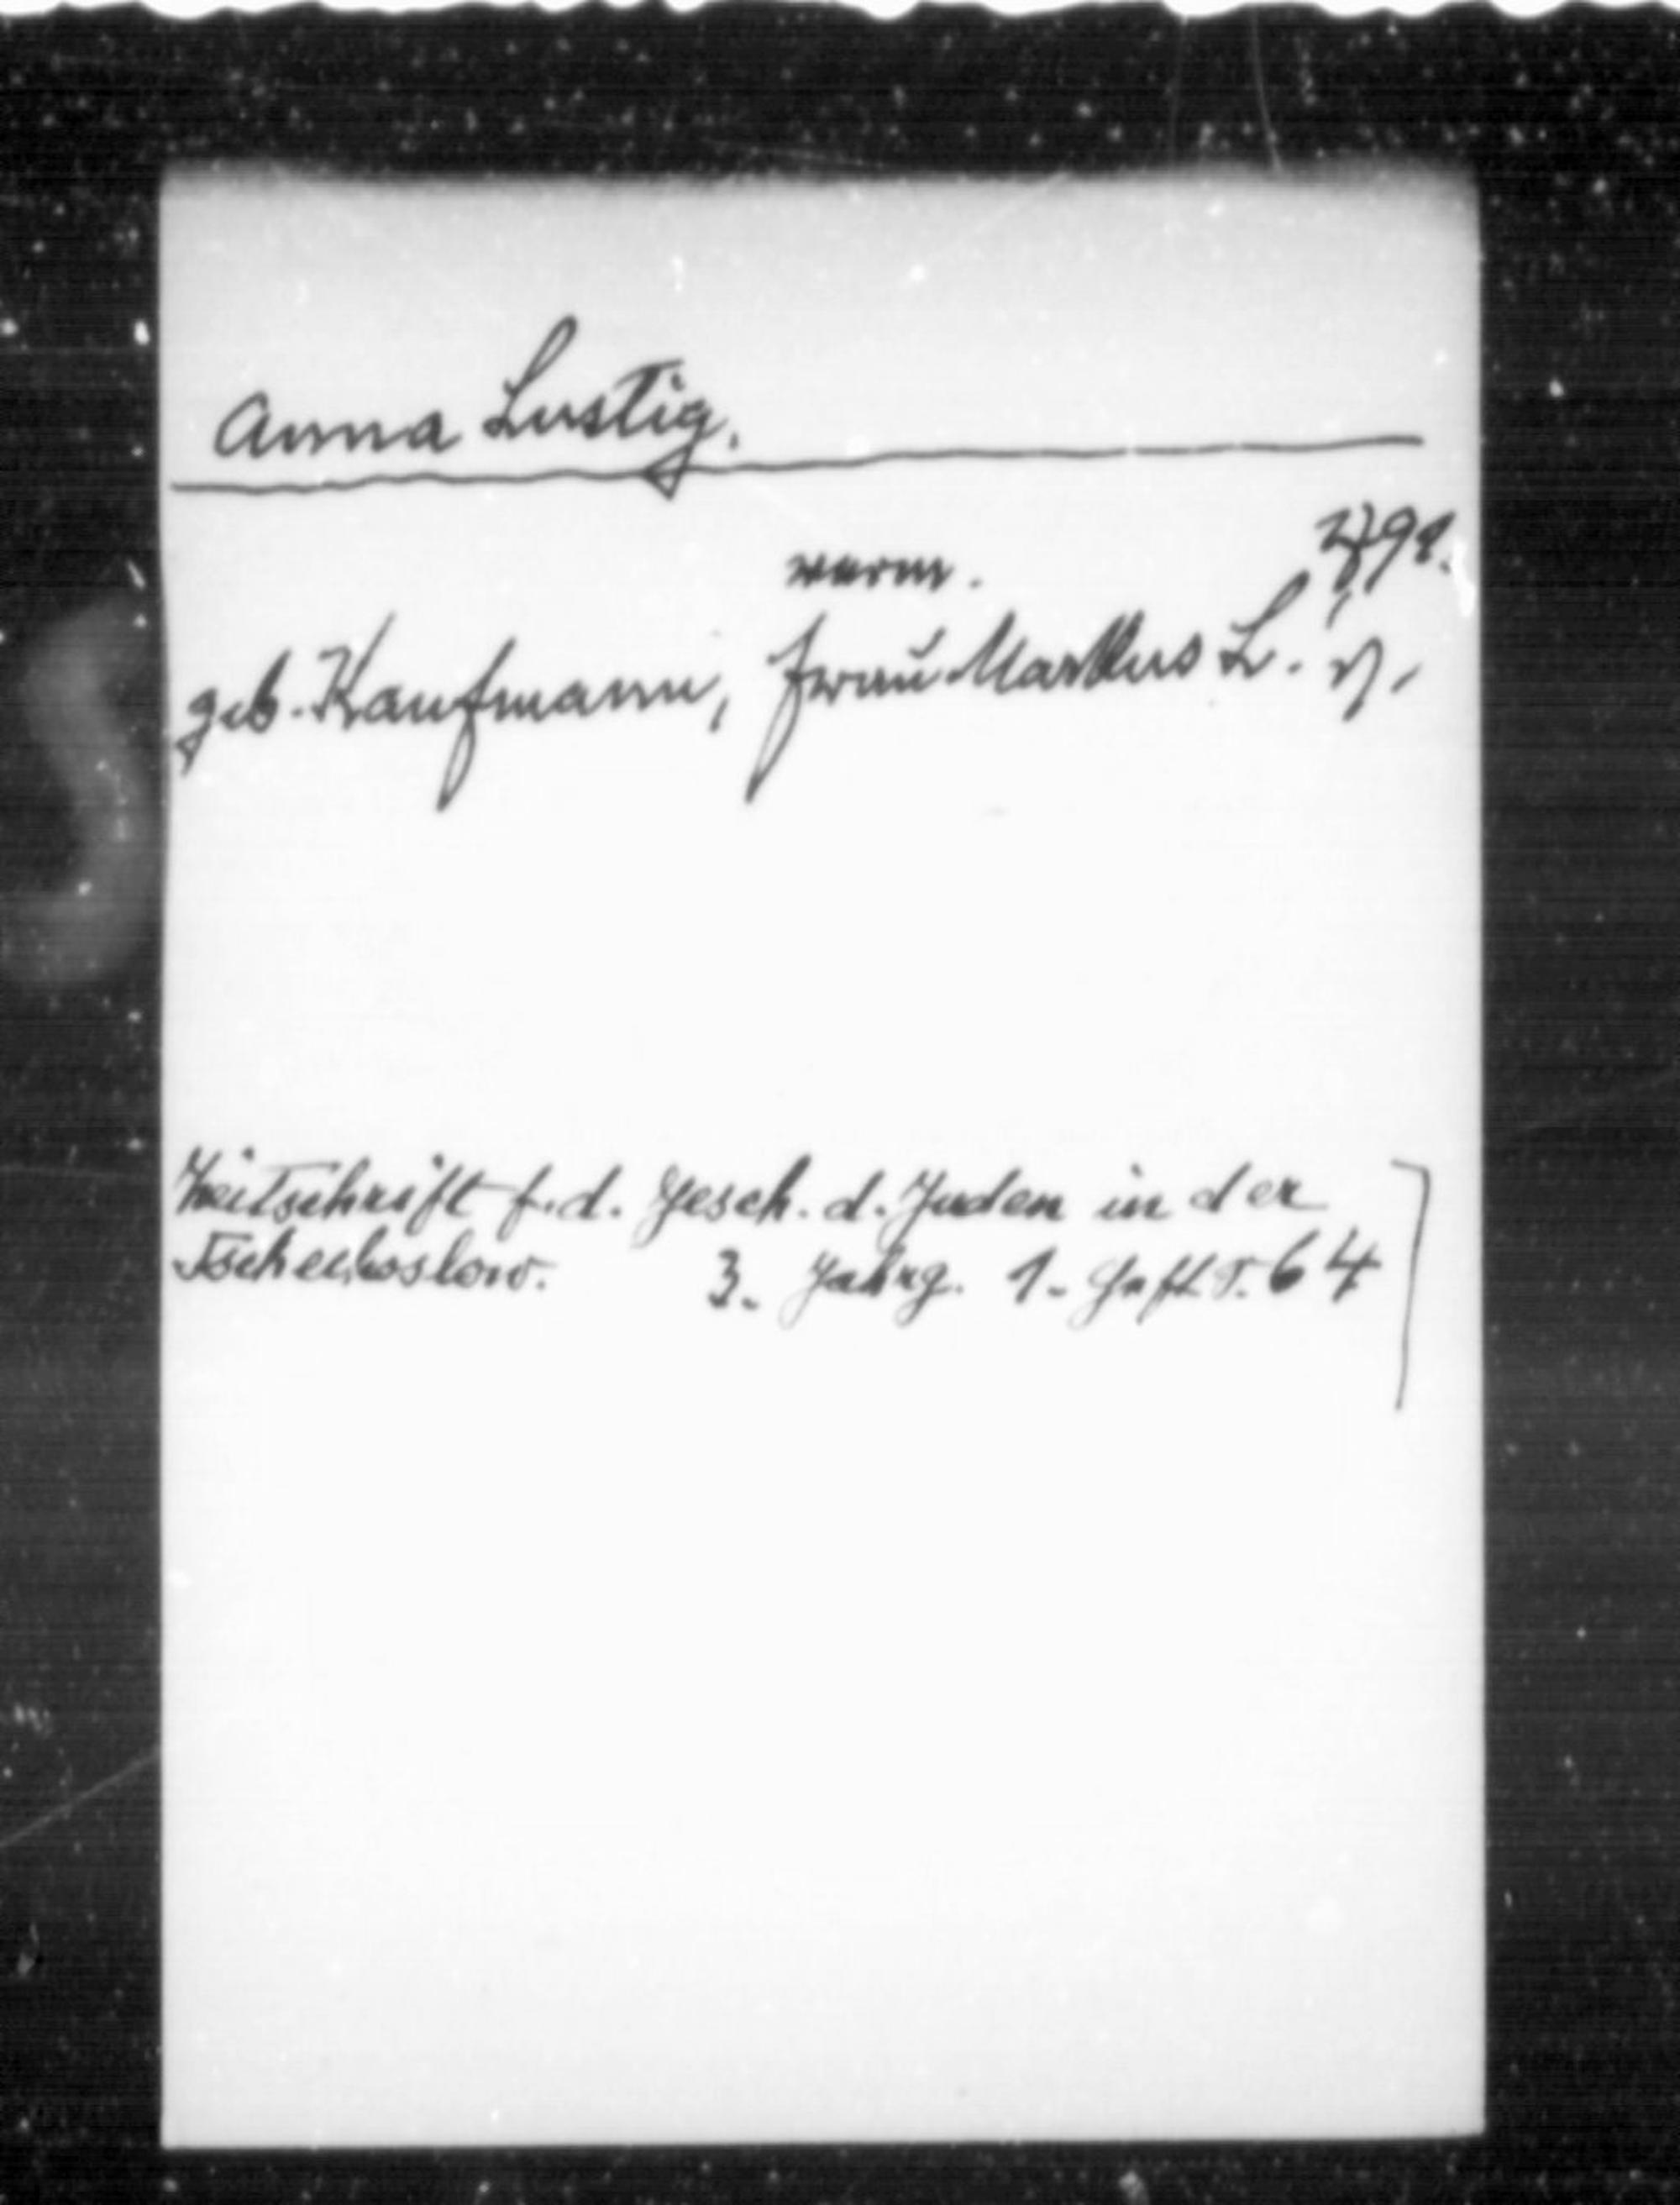 Anna Lustig.
verm.
geb. Kaufmann, Frau Markus L.
Zeitschrift f. d. Gesch. d. Juden in der
Tschechoslow. 3. Jahrg. 1. Heft S. 64